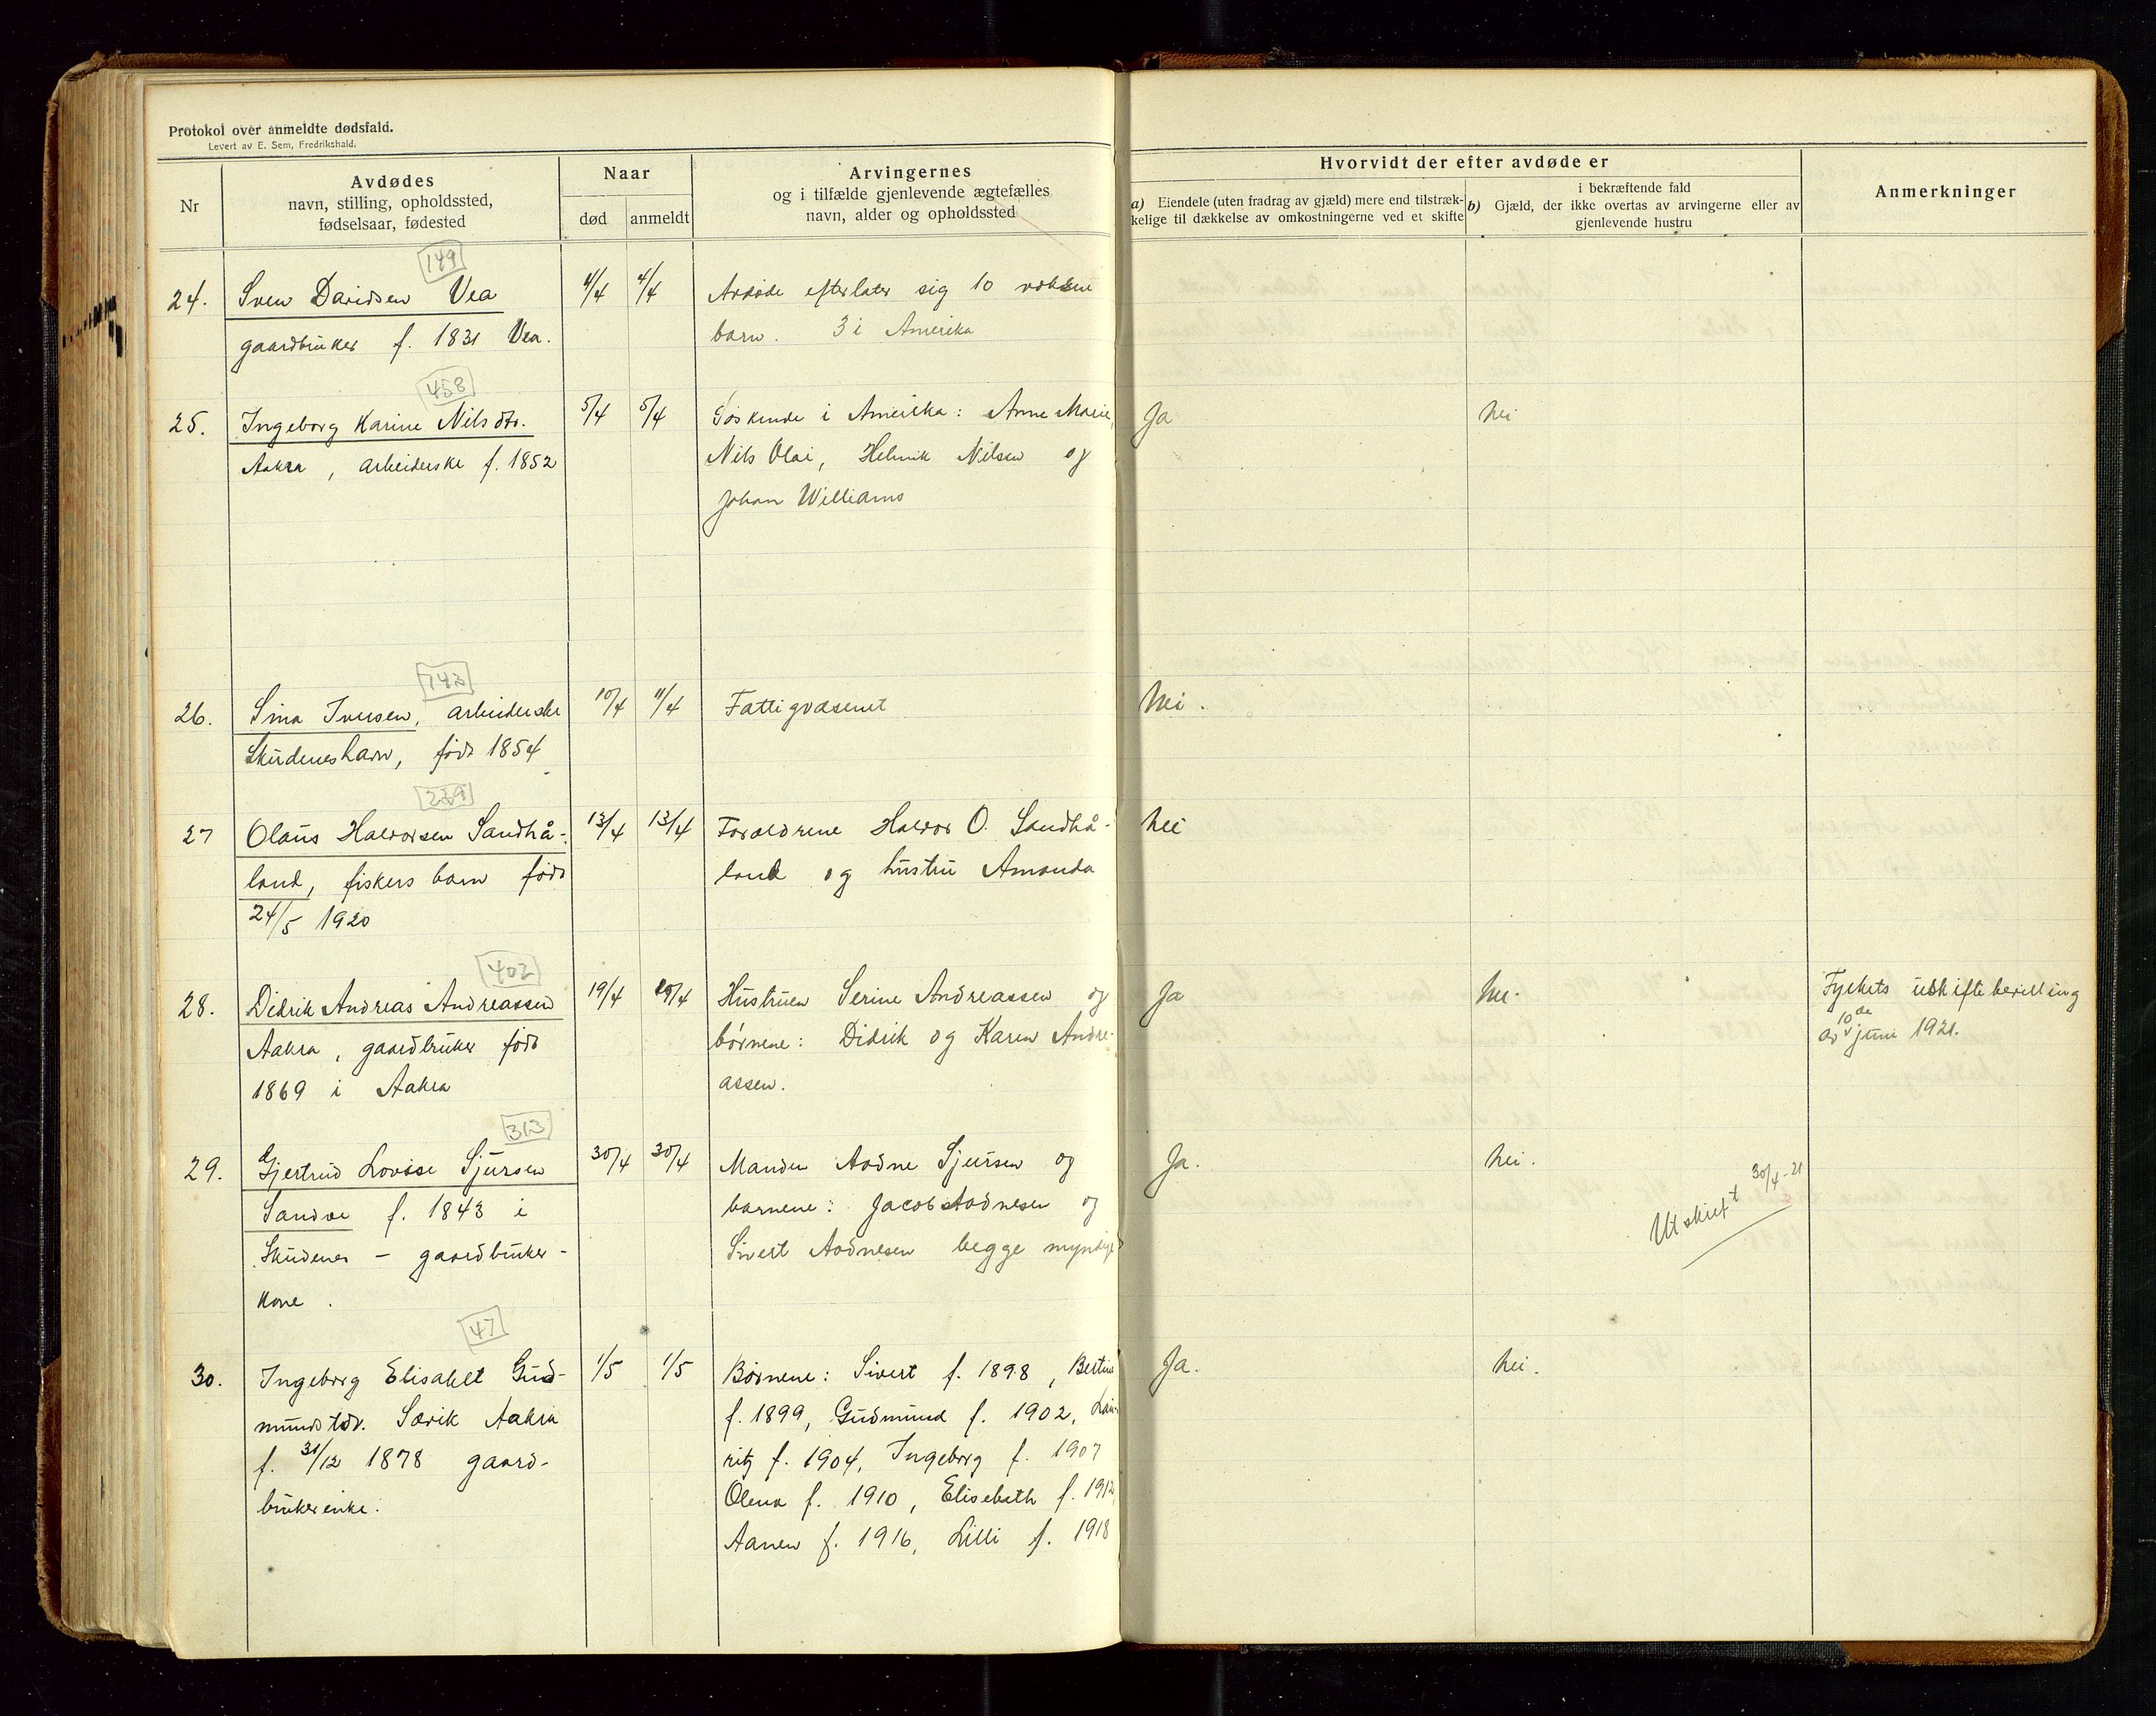 Protokol over anmeldte dødsfald.
Levert av E. Sem, Fredrikshald.
Nr
Avdødes
navn, stilling, opholdssted,
fødselsaar, fødested
Naar
død
anmeldt
Arvingernes
og i tilfælde gjenlevende ægtefælles
navn, alder og opholdssted
Hvorvidt der efter avdøde er
a) Eiendele (uten fradrag av gjæld) mere end tilstræk-
kelige til dækkelse av omkostningerne ved et skifte
i bekræftende fald
b) Gjæld, der ikke overtas av arvingerne eller av
gjenlevende hustru
Anmerkninger
149
24. Sven Davidsen Vea 4/4 4/4 Avdøde efterlater sig 10 voksne
gaardbruker f. 1831 Vea. barn. 3 i Amerika
458
25. Ingeborg Karine Nilsdtr. 5/4 5/4 Søskende i Amerika: Anne Marie, Ja nei
Aakra, arbeiderske f. 1852 Nils Olai, Helmik Nilsen og
Johan Williams
742
26. Sina Iversen, arbeiderske 10/4 11/4 Fattigvæsenet nei.
Skudeneshavn, født 1854
239
27 Olaus Halvorsen Sandhå- 13/4 13/4 Forældrene Halvor O. Sandhå- nei
land, fiskers barn født land og hustru Amanda
24/5 1920
402
28. Didrik Andreas Andreassen 19/4 19/4 Hustruen Serine Andreassen og Ja nei. Fylkets uskiftebevilling
Aakra, gaardbruker født børnene: Didrik og Karen Andre- av 10de juni 1921.
1869 i Aakra assen.
313
29. Gjertrud Lovise Sjursen 30/4 30/4 Manden Aadne Sjursen og Ja. nei.
Sandve f. 1843 i barnene: Jacob Aadnesen og Utskrift 30/4-21
Skudenes - gaardbruker- Sivert Aadnesen begge myndige
kone.
47
30. Ingeborg Elisabet Gud- 1/5 1/5 Børnene: Sivert f. 1898, Bertine Ja. nei.
mundstdr. Sævik Aakra f. 1899, Gudmund f. 1902, Lau-
f. 31/12 1878 gaard- ritz f. 1904, Ingeborg f. 1907
brukerenke. Olena f. 1910, Elisebeth f. 1912,
Aanen f. 1916, Lilli f. 1918